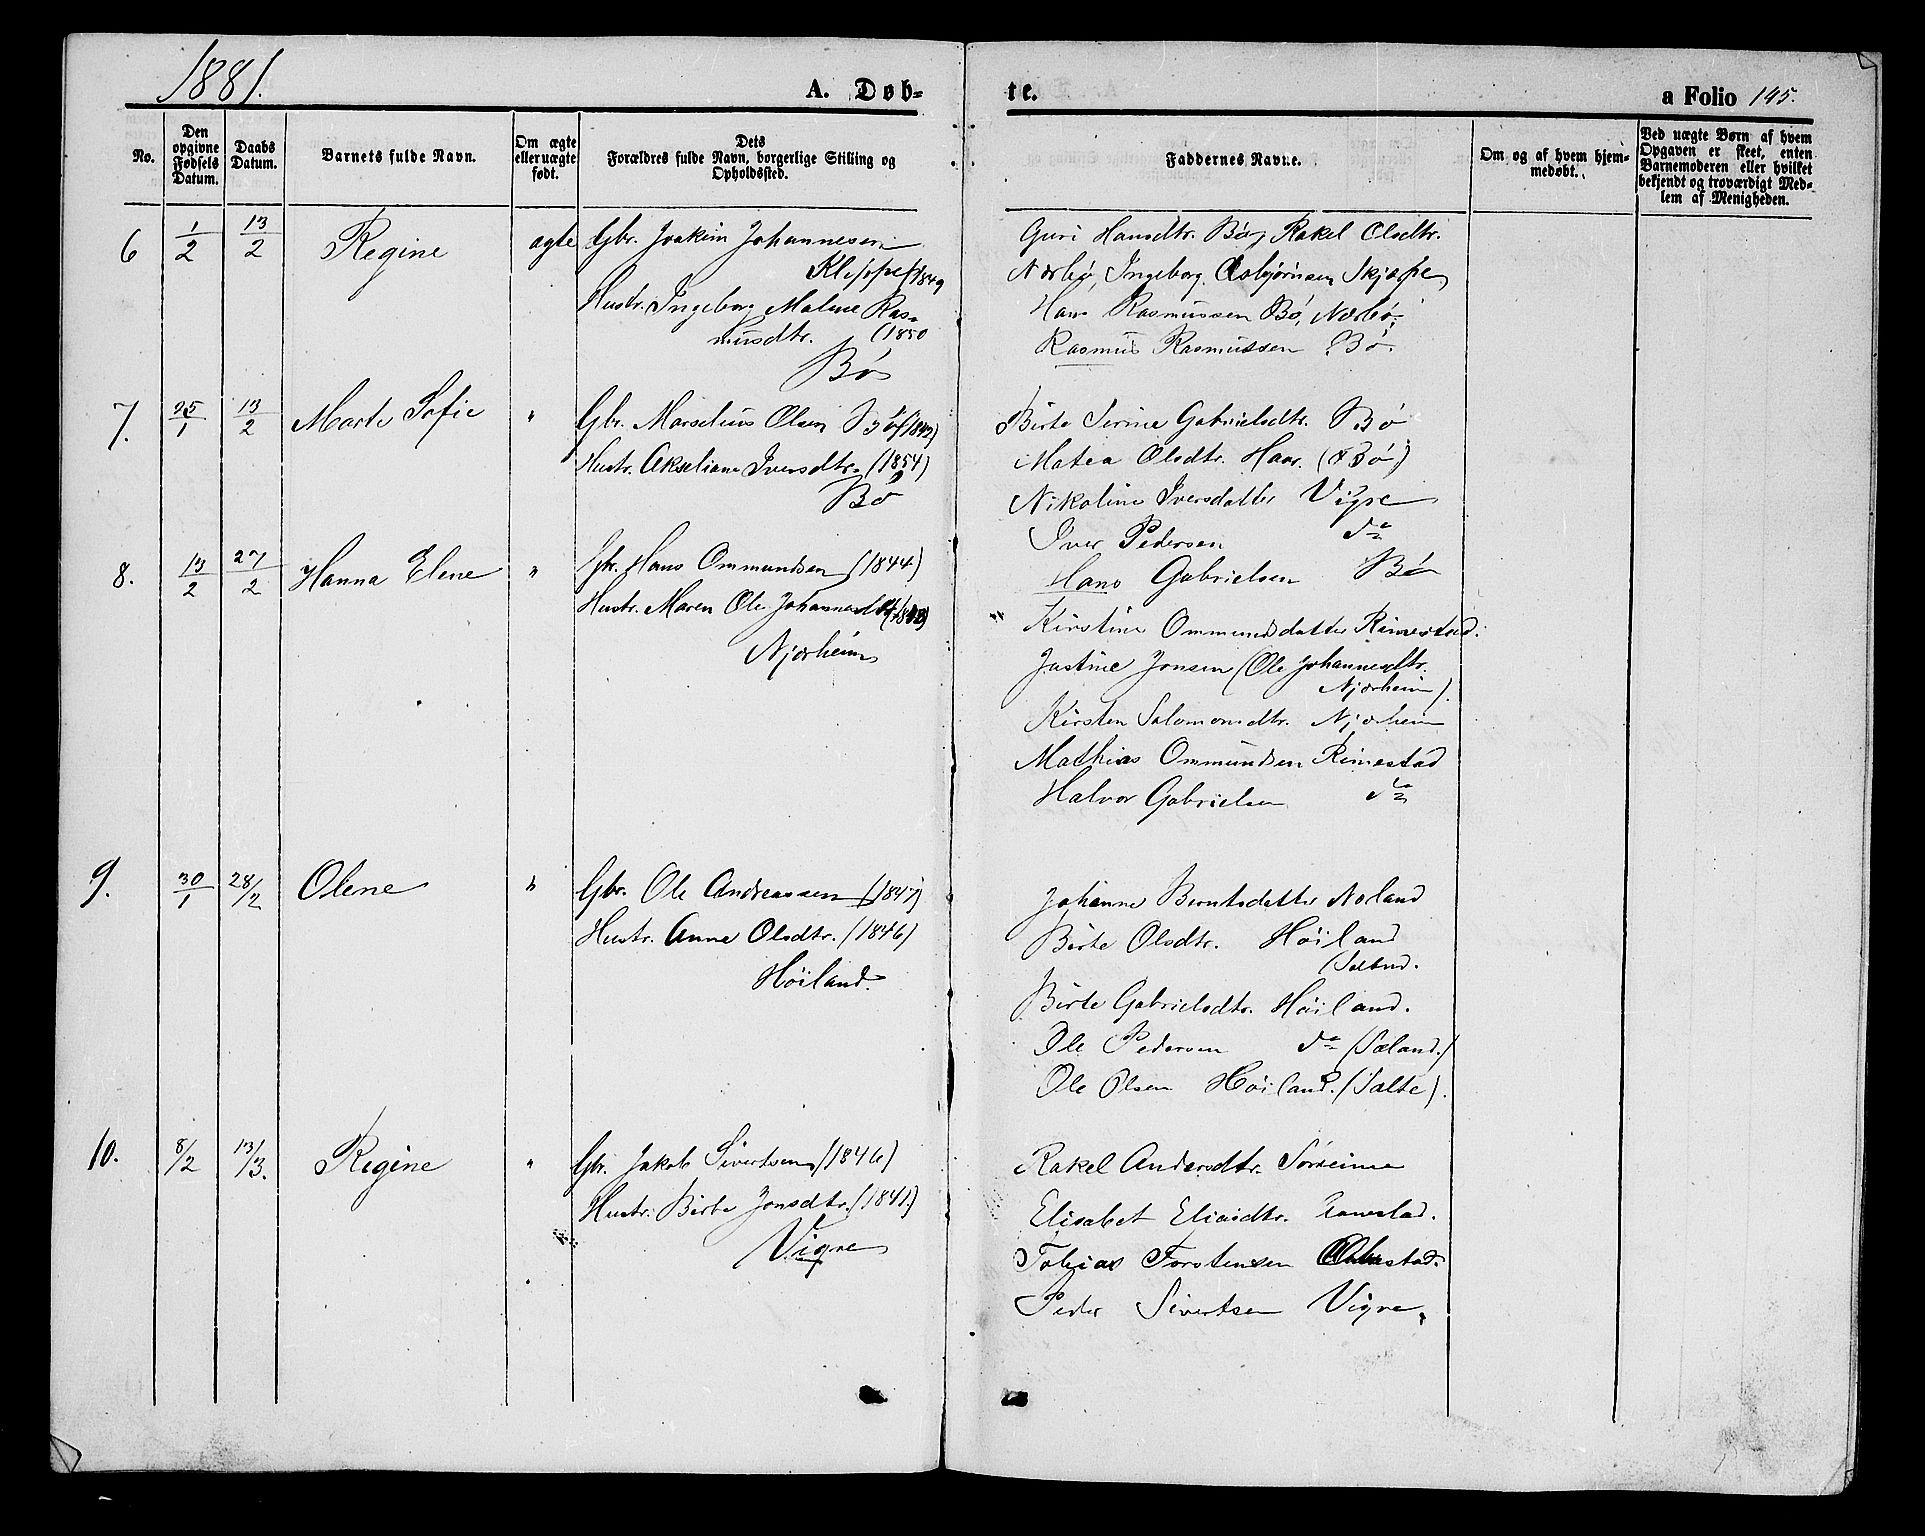 1881.
A. Døb-
te.
a Folio 145.
No.
Den opgivne Fødsels Datum.
Daabs Datum.
Barnets fulde Navn.
Om ægte eller uægte født.
Dets Forældres fulde Navn, borgerlige Stilling og Opholdssted.
Faddernes Navne.
Om og af hvem hjemmedøbt.
Ved uægte Børn af hvem Opgaven er skeet, enten Barnemoderen eller hvilket bekjendt og troværdigt Medlem af Menigheden.
6 1/2 13/2 Regine ægte Gbr. Joakim Johannesen
Kleppe (1849
Hustr. Ingeborg Malene Ras-
musdtr. (1850
Bø
Guri Hansdtr. Bø, Rakel Olsdtr.
Nærbø, Ingeborg Asbjørnsen Skjæpe
Hans Rasmussen Bø, Nærbø;
Rasmus Rasmussen Bø.
7. 25/1 13/2 Marte Sofie " Gbr. Marselius Olsen Bø (1849)
Hustr. Akseliane Iversdtr. (1854)
Bø
Birte Serine Gabrielsdtr. Bø
Matea Olsdtr. Haar. (Bø)
Nikoline Iversdatter Vigre
Iver Pedersen do
Hans Gabrielsen Bø
8. 13/2 27/2 Hanna Elene " Gbr. Hans Ommundsen (1844)
Hustr. Maren Ole Johannesdtr
Njærheim
Kirstine Ommundsdatter Rimestad.
Justine Jonsen (Ole Johannesdtr.
Njærheim).
Kirsten Salomonsdtr. Njærheim
Mathias Ommundsen Rimestad
Halvor Gabrielsen do
9. 30/1 28/2 Olene " Gbr. Ole Andreassen (1847)
Hustr. Anne Olsdtr. (1846)
Höiland.
Johanne Berntsdatter Norland
Birte Olsdtr. Höiland
Birte Gabrielsdtr. Höiland.
Ole Pedersen do (Sæland.)
Ole Olsen Höiland. (Salte).
10. 8/2 13/3. Regine " Gbr. Jakob Sivertsen (1846)
Hustr. Birte Jonsdtr. (1841.)
Vigre
Rakel Andersdtr. Sørheime
Elisabet Eliasdtr.
Tobias Torstensen
Peder Sivertsen Vigre.